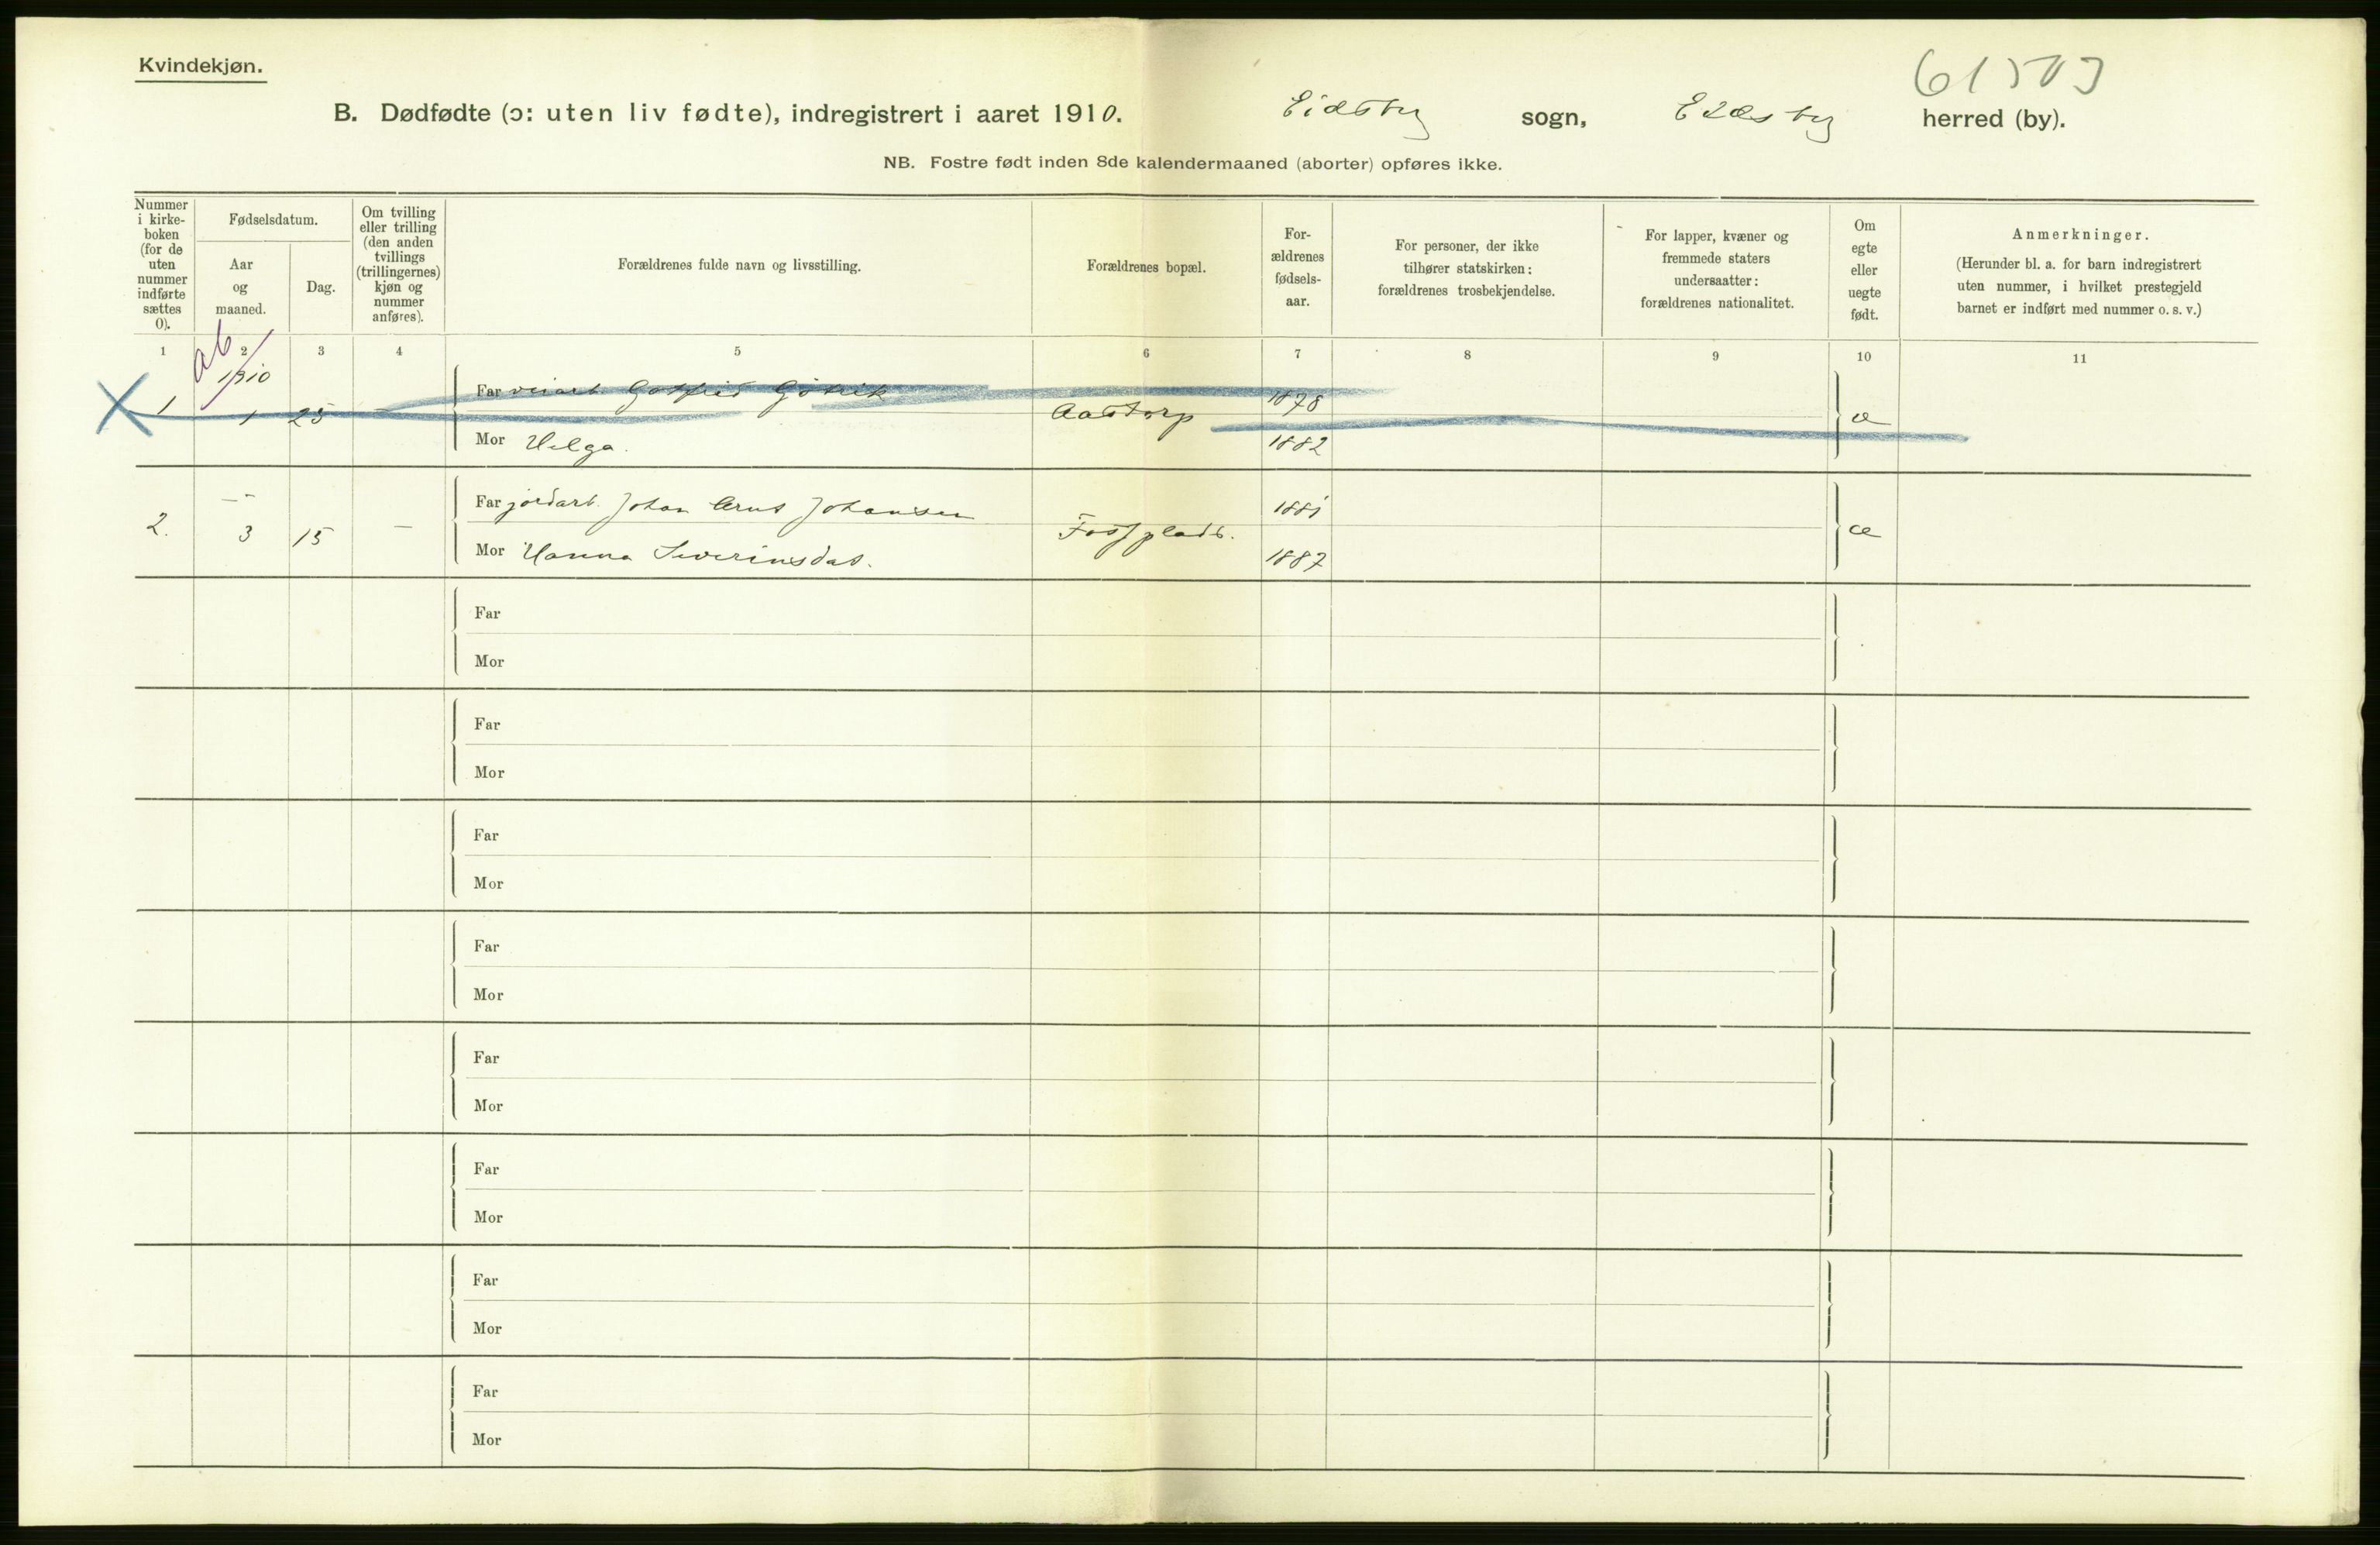 Kvindekjøn.
61503
B. Dødfødte (ɔ: uten liv fødte), indregistrert i aaret 1910. Eidsby sogn, Eidsby herred (by).
NB. Fostre født inden 8de kalendermaaned (aborter) opføres ikke.
Nummer i kirke-
boken
(for de
uten
nummer
indførte
sættes
0).
Fødselsdatum.
Aar
og
maaned.
Dag.
Om tvilling
eller trilling
(den anden
tvillings
(trillingernes)
kjøn og
nummer
anføres).
Forældrenes fulde navn og livsstilling.
Forældrenes bopæl.
For-
ældrenes
fødsels-
aar.
For personer, der ikke
tilhører statskirken:
forældrenes trosbekjendelse.
For lapper, kvæner og
fremmede staters
undersaatter:
forældrenes nationalitet.
Om
egte
eller
uegte
født.
Anmerkninger.
(Herunder bl. a. for barn indregistrert
uten nummer, i hvilket prestegjeld
barnet er indført med nummer o. s. v.)
1 2 3 4 5 6 7 8 9 10 11
ab
1910
1 1 25 Far Gotfried 1878
Aastorp æ
Mor Helga. 1882
2. 3 15 — Far jordarb. Johan Johansen 1881
Foss æ
Mor Hanna Severinsdat. 1887
Far
Mor
Far
Mor
Far
Mor
Far
Mor
Far
Mor
Far
Mor
Far
Mor
Far
Mor